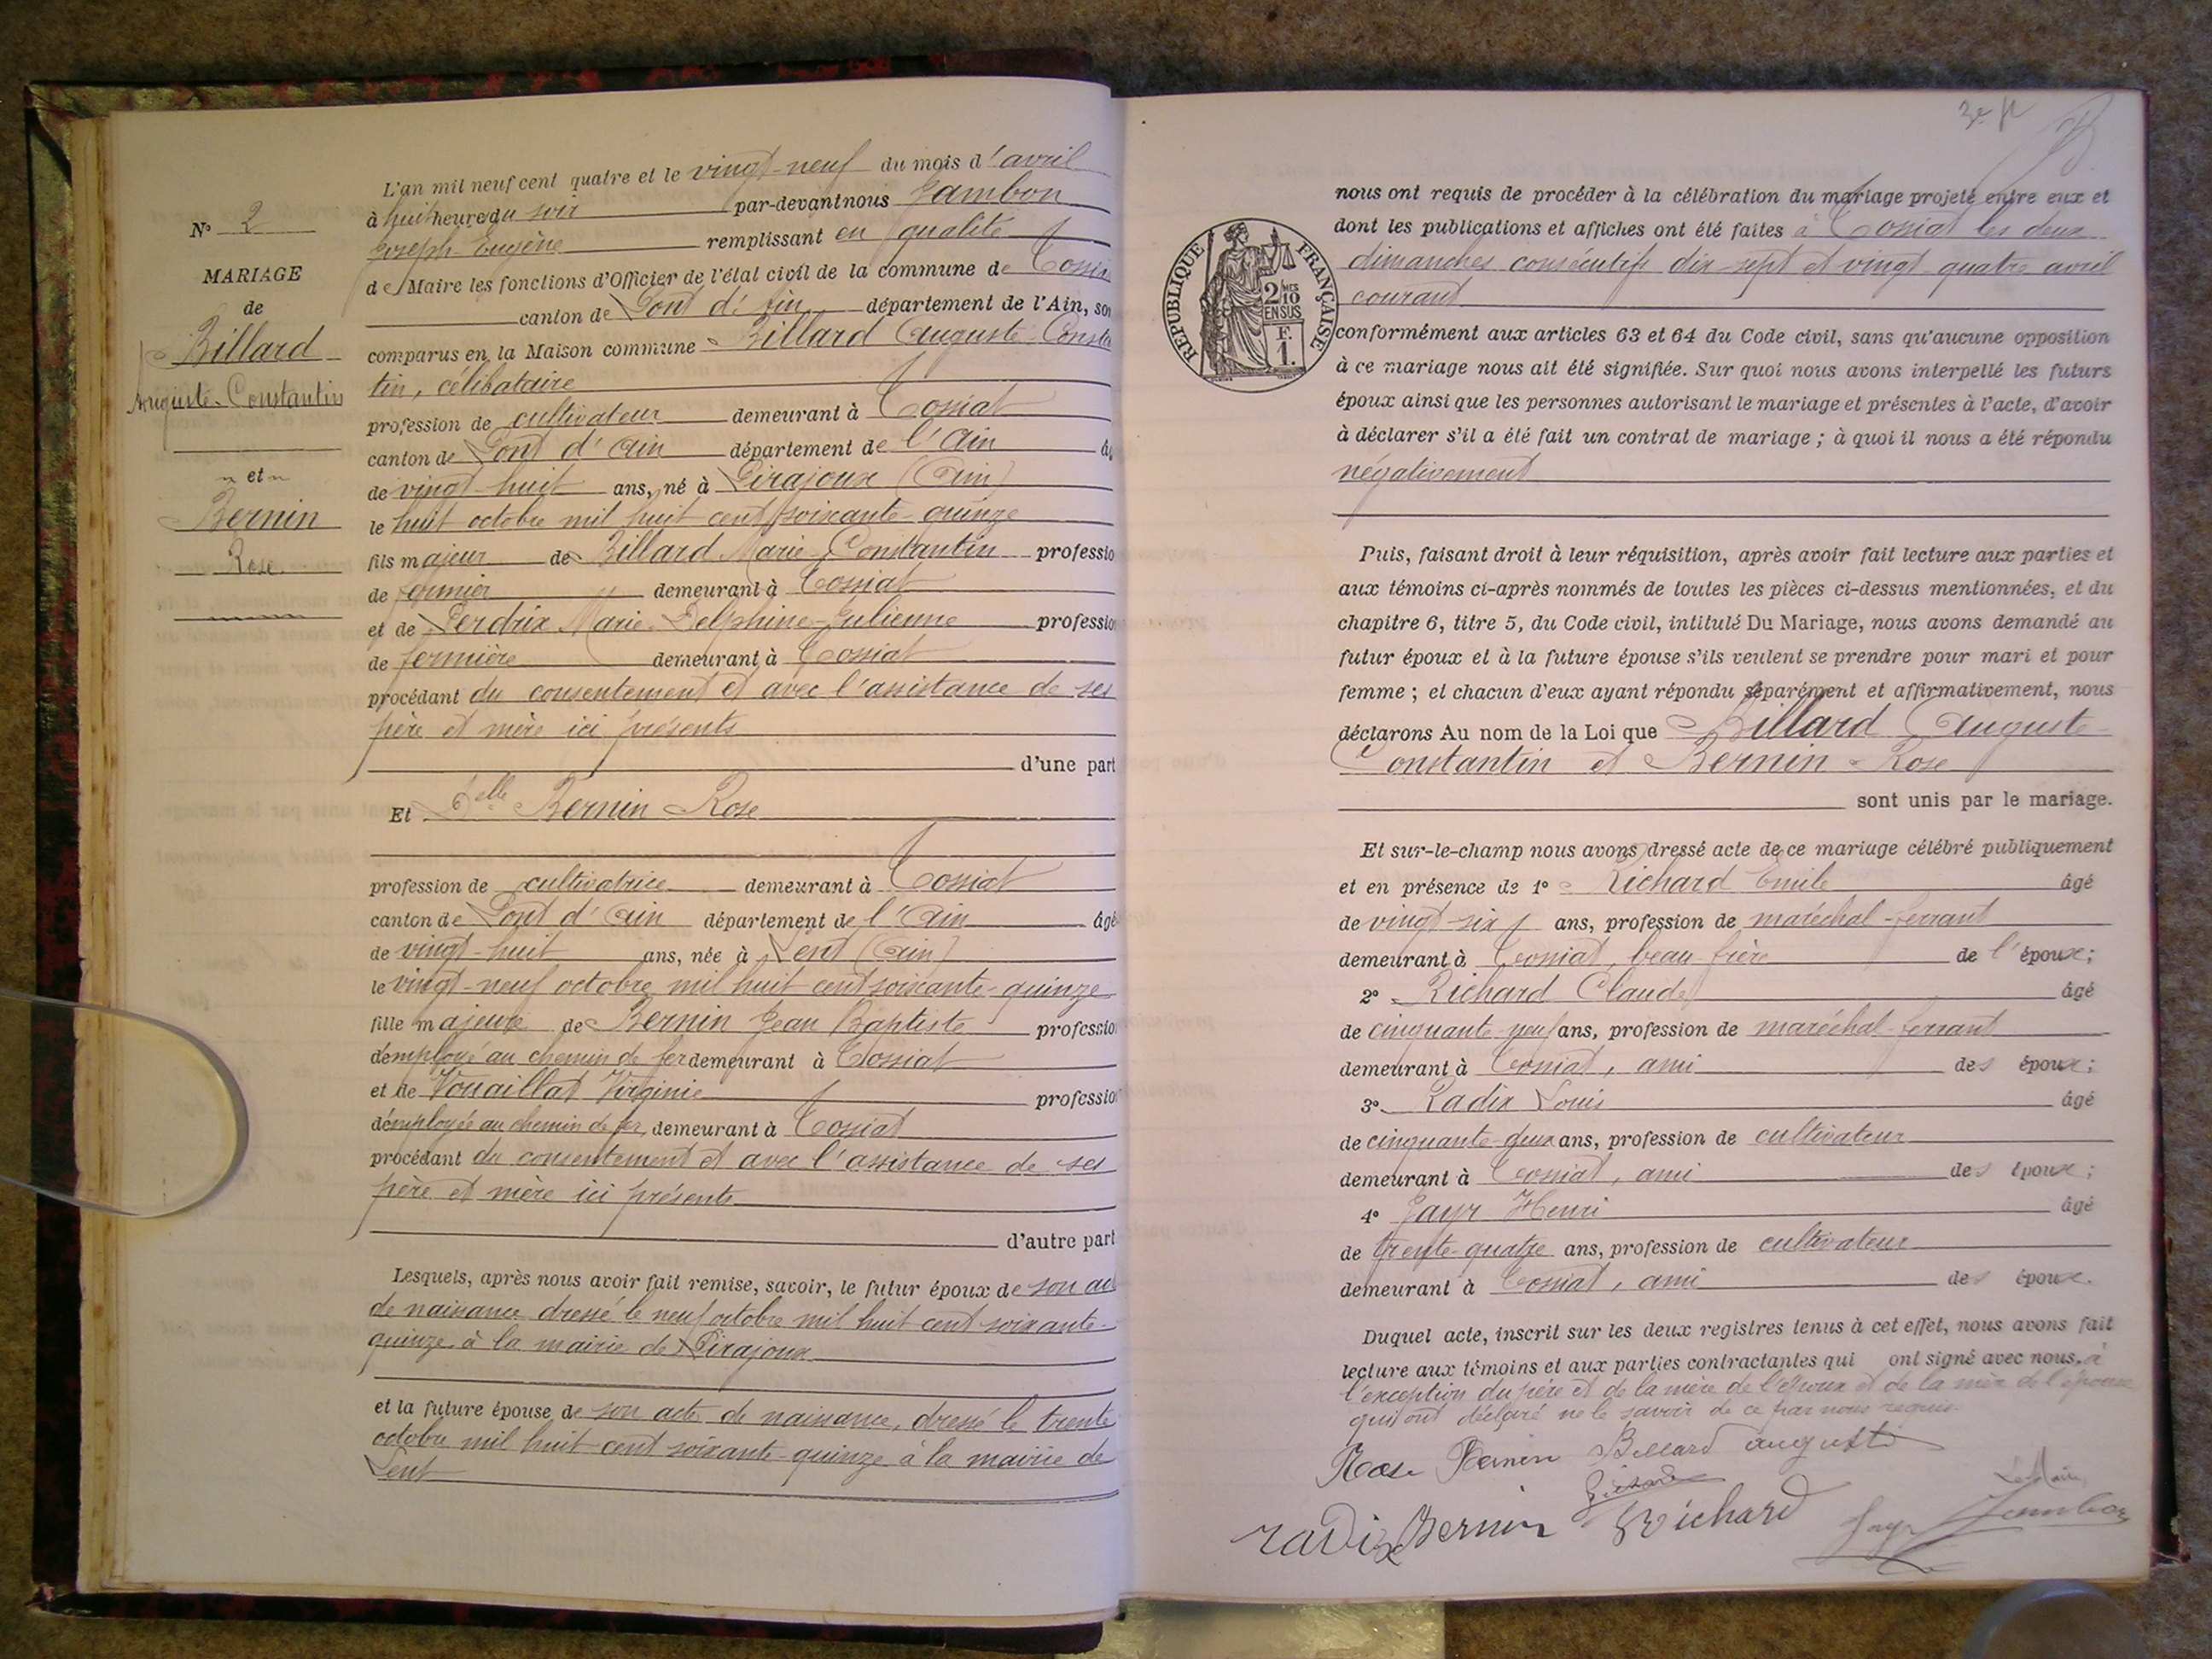 N° 2
MARIAGE
de
Billard
Auguste-Constantin
et
Bernin
Rose
L'an mil neuf cent quatre et le vingt-neuf du mois d'avril
à huit heure du soir par-devant nous Jambon
Joseph-Eugène remplissant en qualité
de Maire les fonctions d'Officier de l'état civil de la commune de Tossia
canton de Pont d'Ain département de l'Ain, son
comparus en la Maison commune Billard Auguste-Consta
tin, célibataire
profession de cultivateur demeurant à Tossiat
canton de Pont d'Ain département de l'Ain âg
de vingt-huit ans, né à Pirajoux (Ain)
le huit octobre mil huit cent soixante-quinze
fils majeur de Billard Marie-Constantin professio
de fermier demeurant à Tossiat
et de Perdrix Marie-Delphine-Julienne professio
de fermière demeurant à Tossiat
procédant du consentement et avec l'assistance de ses
père et mère ici présents
d'une part
Et Delle Bernin Rose
profession de cultivatrice demeurant à Tossiat
canton de Pont d'Ain département de l'Ain âgé
de vingt-huit ans, née à Lent (Ain)
le vingt-neuf octobre mil huit cent soixante-quinze
fille majeure de Bernin Jean Baptiste profession
d'employé au chemin de fer demeurant à Tossiat
et de Vouaillat Virginie profession
d'employée au chemin de fer, demeurant à Tossiat
procédant du consentement et avec l'assistance de ses
père et mère ici présents
d'autre part
Lesquels, après nous avoir fait remise, savoir, le futur époux de son ac
de naissance dressé le neuf octobre mil huit cent soixante-
quinze à la mairie de Pirajoux
et la future épouse de son acte de naissance, dressé le trente
octobre mil huit cent soixante-quinze à la mairie de
Lent
nous ont requis de procéder à la célébration du mariage projeté entre eux et
dont les publications et affiches ont été faites à Tossiat les deux
dimanches consécutifs dix-sept et vingt-quatre avril
courant
RÉPUBLIQUE FRANÇAISE
2/10 EN SUS
F.
1.
conformément aux articles 63 et 64 du Code civil, sans qu'aucune opposition
à ce mariage nous ait été signifiée. Sur quoi nous avons interpellé les futurs
époux ainsi que les personnes autorisant le mariage et présentes à l'acte, d'avoir
à déclarer s'il a été fait un contrat de mariage ; à quoi il nous a été répondu
négativement
Puis, faisant droit à leur réquisition, après avoir fait lecture aux parties et
aux témoins ci-après nommés de toutes les pièces ci-dessus mentionnées, et du
chapitre 6, titre 5, du Code civil, intitulé Du Mariage, nous avons demandé au
futur époux et à la future épouse s'ils veulent se prendre pour mari et pour
femme ; et chacun d'eux ayant répondu séparément et affirmativement, nous
déclarons Au nom de la Loi que Billard Auguste
Constantin et Bernin Rose
sont unis par le mariage.
Et sur-le-champ nous avons dressé acte de ce mariage célébré publiquement
et en présence de 1° Richard Emile âgé
de vingt-six ans, profession de maréchal-ferrant
demeurant à Tossiat, beau-frère de l'époux;
2° Richard Claude âgé
de cinquante-neuf ans, profession de maréchal-ferrant
demeurant à Tossiat, ami des époux;
3° Radix Louis âgé
de cinquante-deux ans, profession de cultivateur
demeurant à Tossiat, ami des époux;
4° Jayr Henri âgé
de trente-quatre ans, profession de cultivateur
demeurant à Tossiat, ami des époux.
Duquel acte, inscrit sur les deux registres tenus à cet effet, nous avons fait
lecture aux témoins et aux parties contractantes qui ont signé avec nous, à
l'exception du père et de la mère de l'époux et de la mère de l'épouse
qui ont déclaré ne le savoir de ce par nous requis.
Rose Bernin Billard auguste
Le Maire
radix Bernin Richard Jayr Jambon